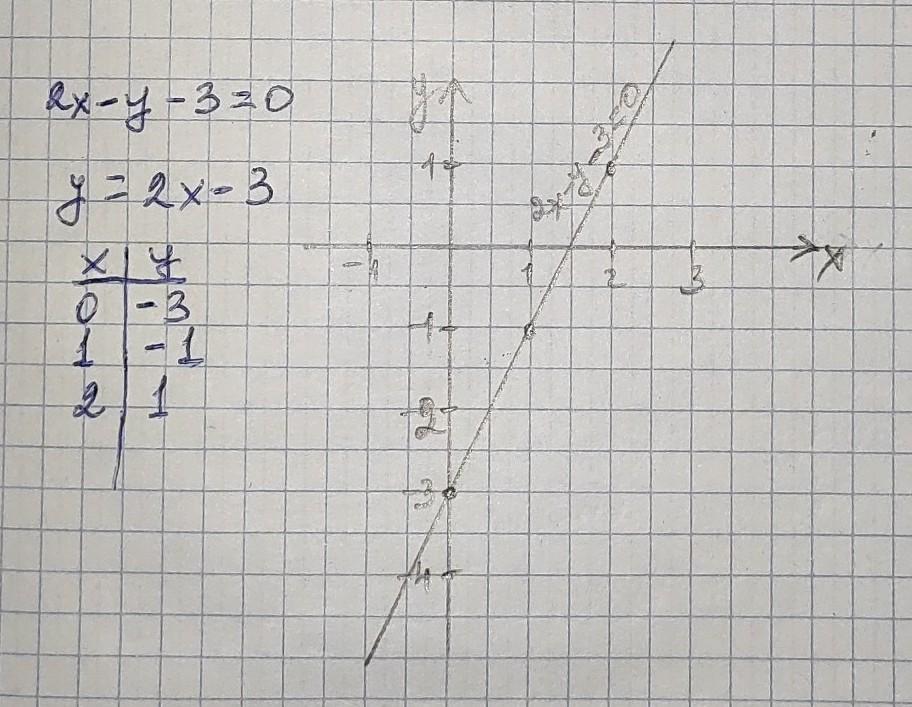 2x-y-3=0
y=2x-3
x y
0 -3
1 -1
2 1
y
1
2x-y-3=0
-1 1 2 3 x
-1
-2
-3
-4